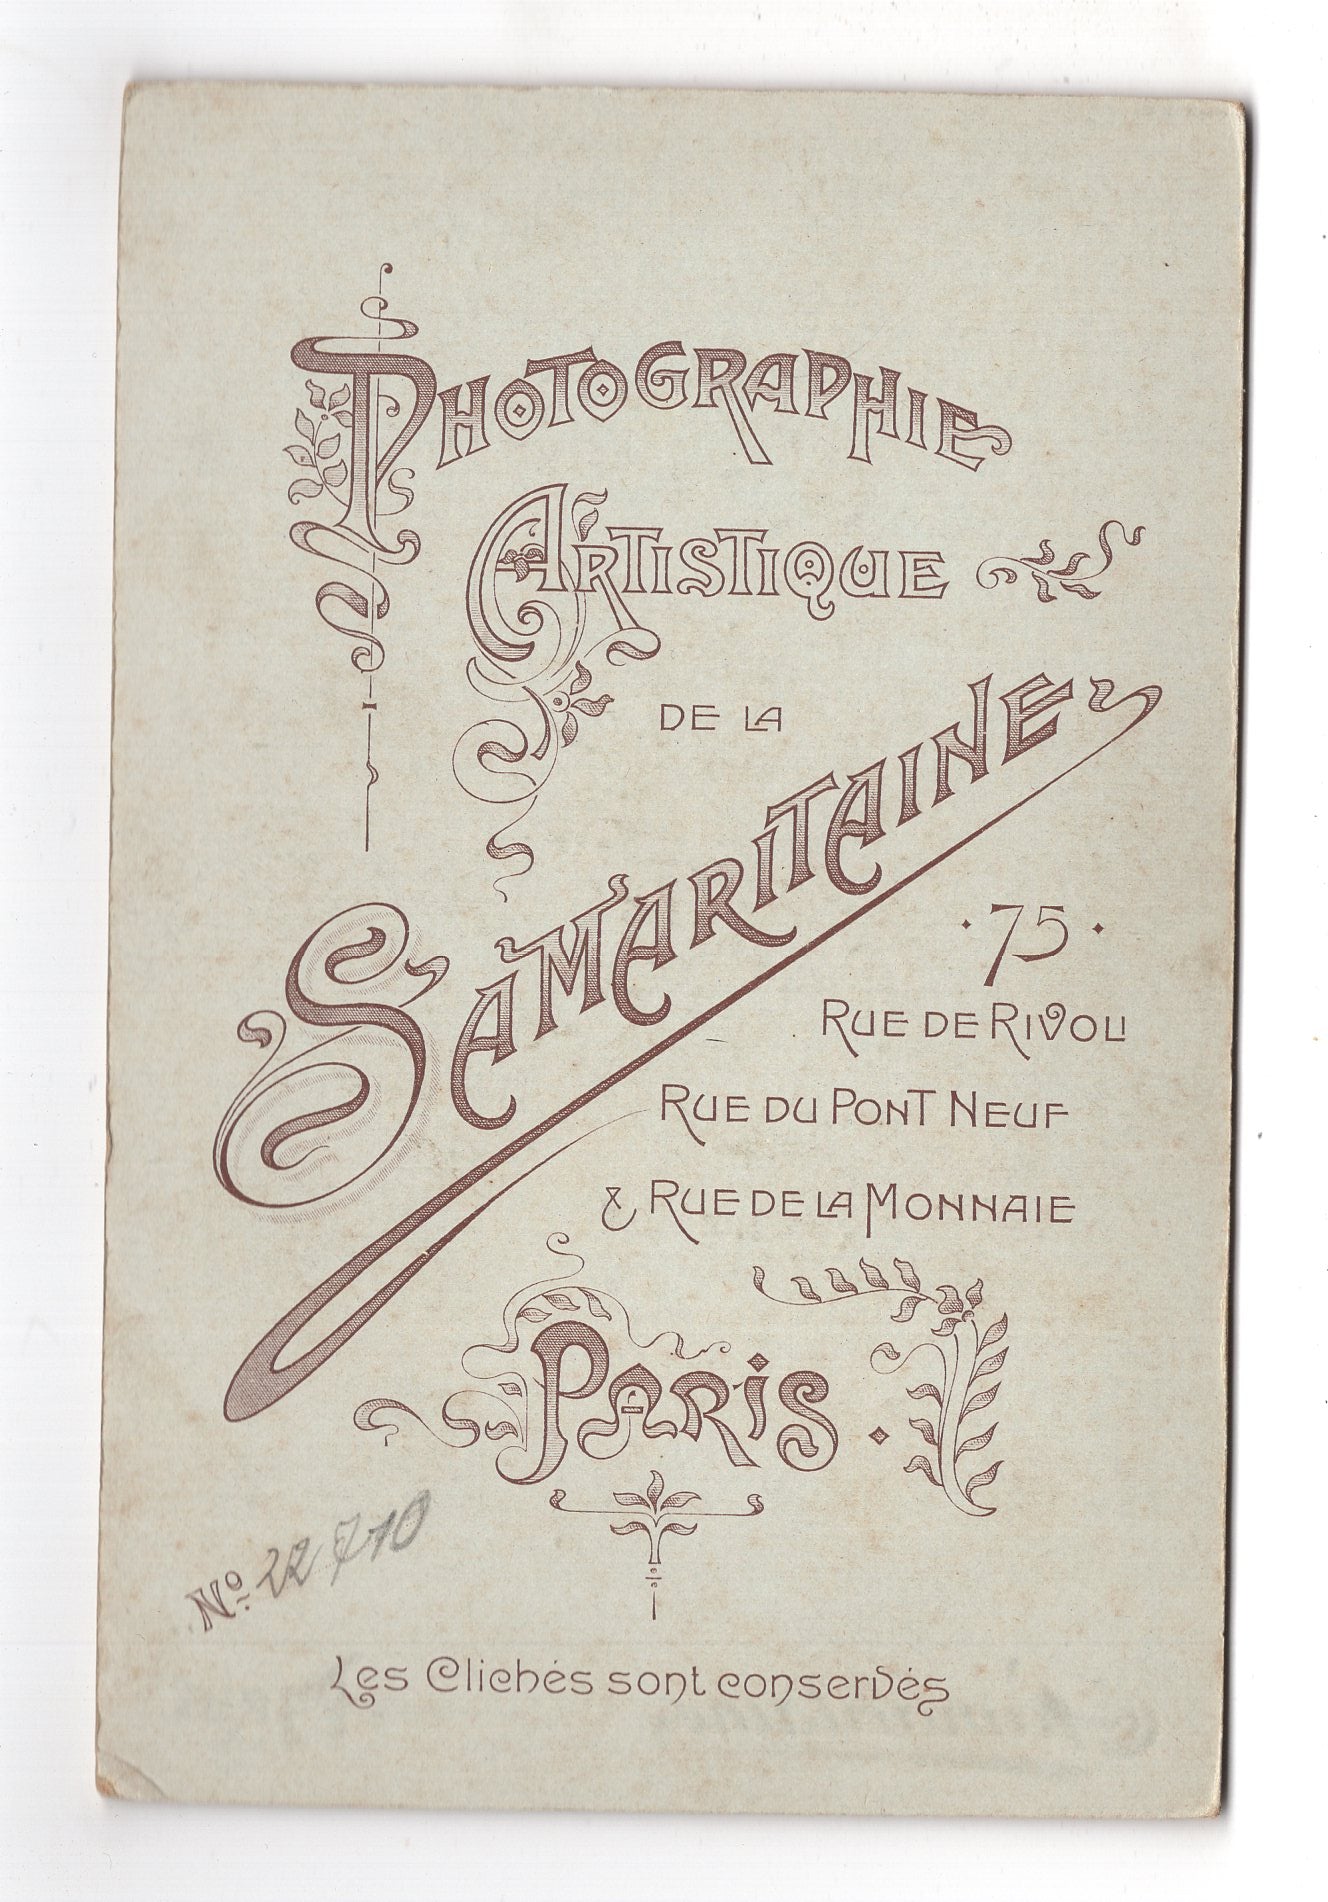 PHOTOGRAPHIE
ARTISTIQUE
DE LA
SAMARITAINE
· 75 ·
RUE DE RIVOLI
RUE DU PONT NEUF
& RUE DE LA MONNAIE
PARIS.
No 22710
Les Clichés sont conservés